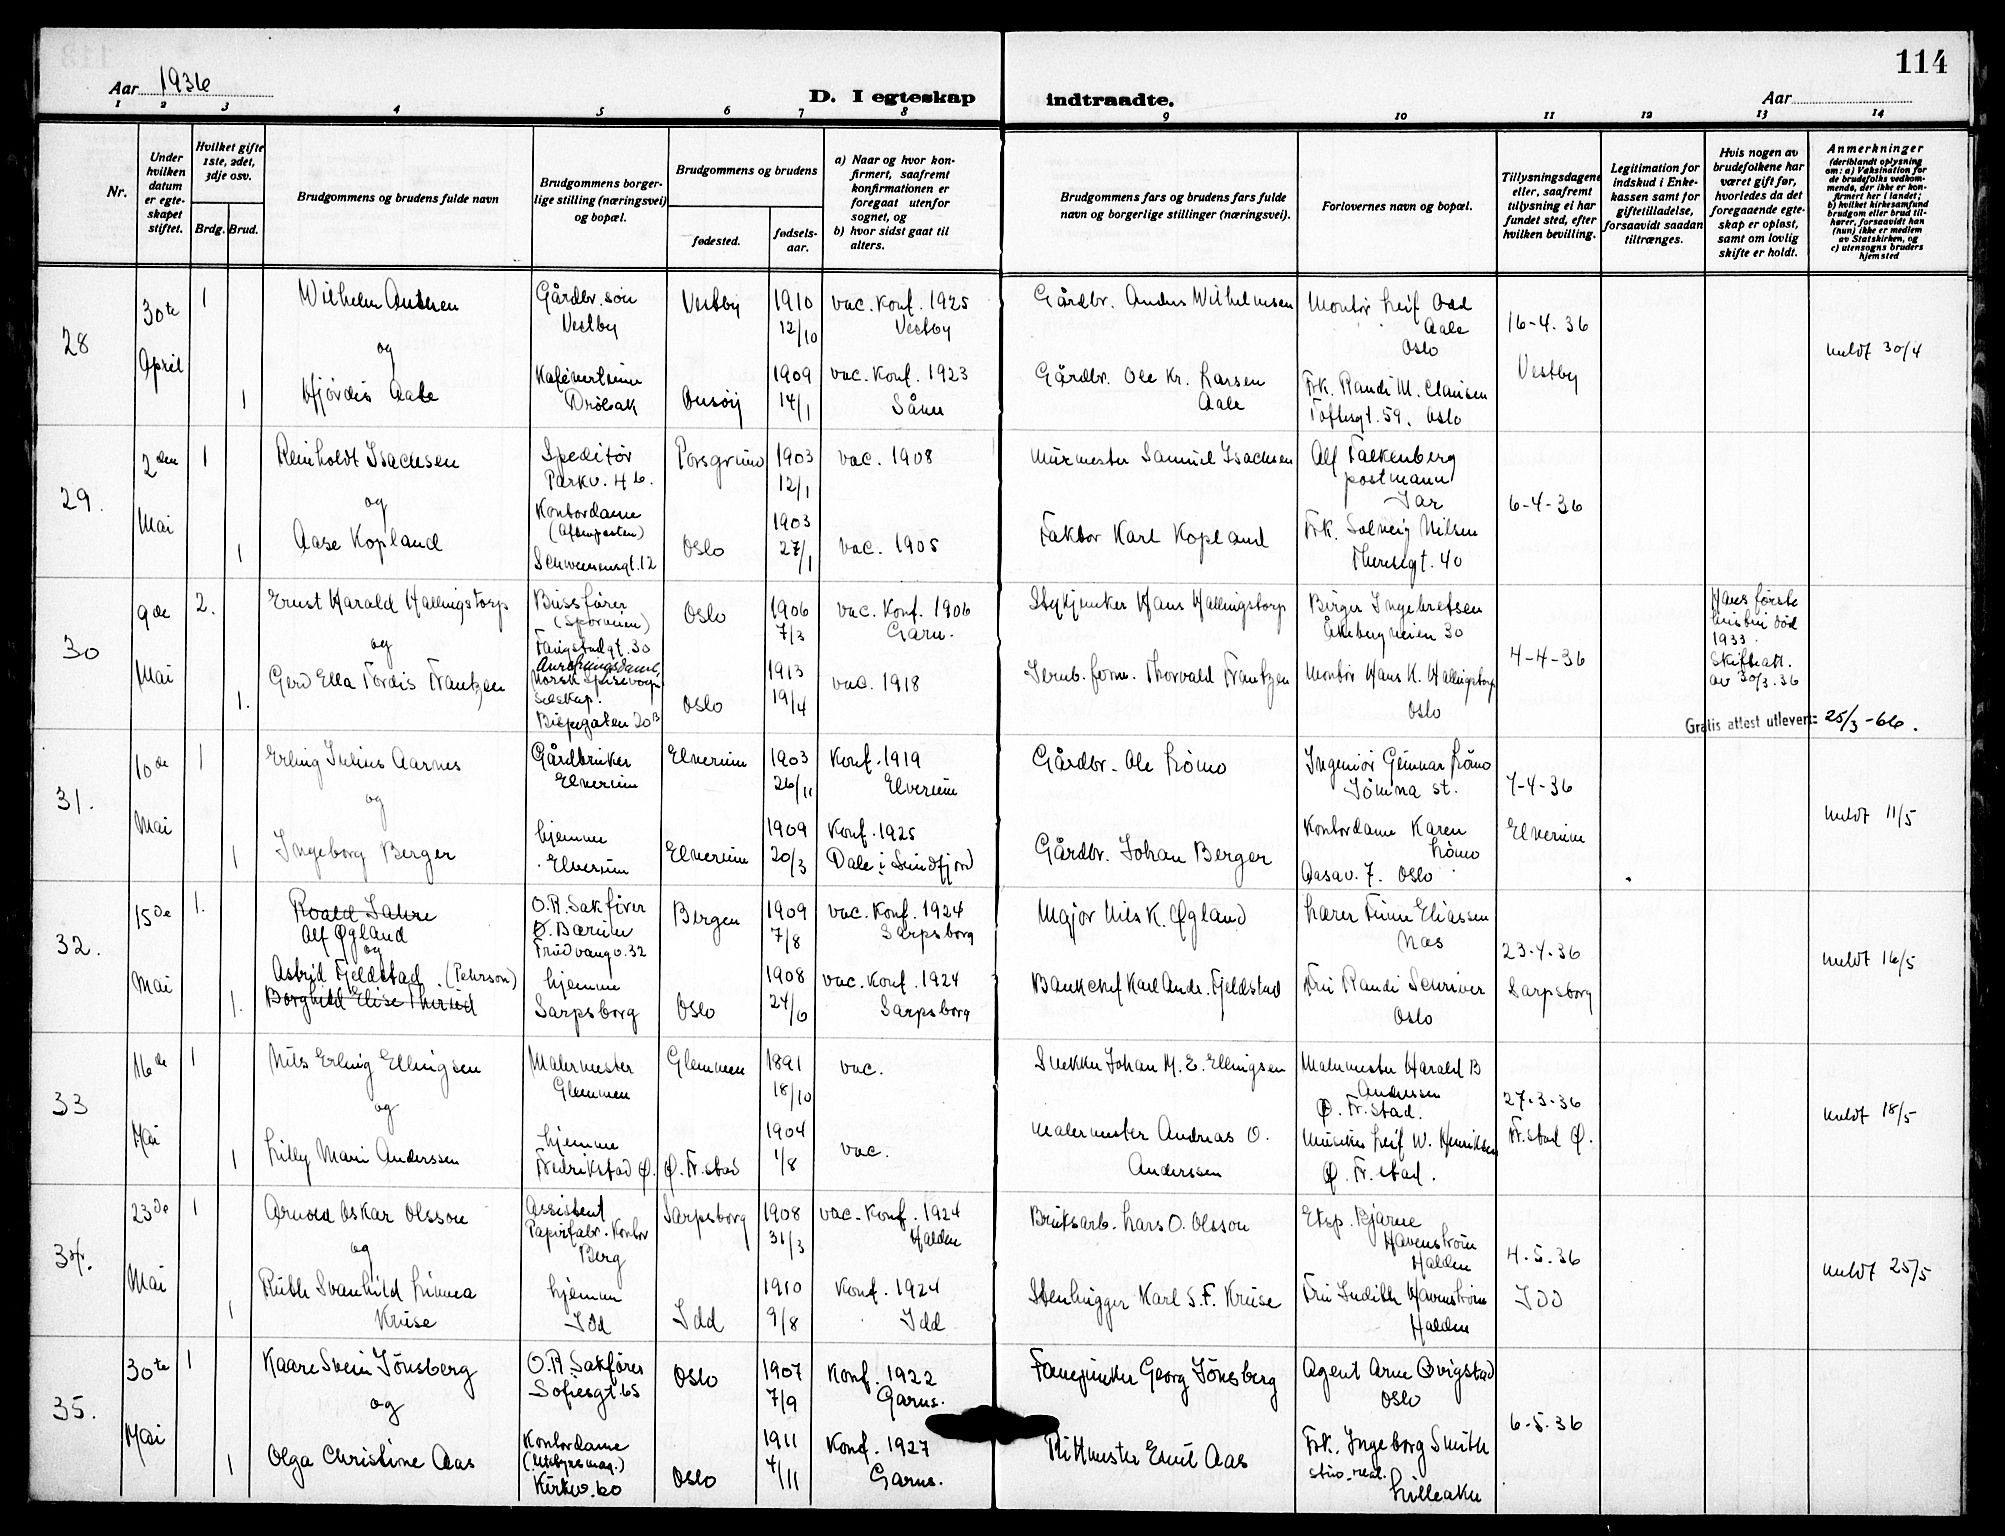 114
Aar 1936
D. I egteskap indtraadte.
Aar
1 2 3 4 5 6 7 8 9 10 11 12 13 14
Nr.
Under hvilken datum er egte-skapet stiftet.
Hvilket gifte 1ste, 2det, 3dje osv.
Brdg. Brud.
Brudgommens og brudens fulde navn
Brudgommens borger-lige stilling (næringsvei) og bopæl.
Brudgommens og brudens
fødested.
fødsels-aar.
a) Naar og hvor kon-firmert, saafremt konfirmationen er foregaat utenfor sognet, og
b) hvor sidst gaat til alters.
Brudgommens fars og brudens fars fulde navn og borgerlige stillinger (næringsvei).
Forlovernes navn og bopæl.
Tillysningsdagene eller, saafremt tillysning ei har fundet sted, efter hvilken bevilling.
Legitimation for indskud i Enke-kassen samt for giftetilladelse, forsaavidt saadan tiltrænges.
Hvis nogen av brudefolkene har været gift før, hvorledes da det foregaaende egte-skap er opløst, samt om lovlig skifte er holdt.
Anmerkninger
(deriblandt oplysning om: a) Vaksination for de brudefolks vedkom-mende, der ikke er kon-firmert her i landet; b) hvilket kirkesamfund brudgom eller brud til-hører, forsaavidt han (hun) ikke er medlem av Statskirken, og c) utensogns bruders hjemsted
28
30te April
1
Wilhelm
og
Hjørdis Aale
1
Gårdbr. søn
Vestby
Drøbak
Vestby
1910
12/10
1909
14/1
vac. Konf. 1925
Vestby
vac. Konf. 1923
Såner
Gårdbr. Anders Wilhelmsen
Gårdbr. Ole Kr. Larsen
Aale
Montør Leif Odd
Aale
Oslo
Frk. Randi M. Clausen
Toftesgt. 59. Oslo
16-4-36
Vestby
meldt 30/4
29.
2den Mai
1
Reinholdt Isachsen
og
Aase Kopland
1
Speditør
Parkv. 46.
Kontordame
(Aftenposten)
Schweensensgt. 12
Porsgrund
Oslo
1903
12/1
1903
27/1
vac. 1908
vac. 1905
Murmester Samuel Isachsen
Faktor Karl Kopland
Alf Falkenberg
postmann
Jar
Frk. Solveig Nilsen
Theresgt. 40
6-4-36
30
9de Mai
2.
Ernst Harald Hallingstorp
og
Gerd Ella Tordis Frantzen
1.
Bussfører
(Sporveien)
selskap.
Bispegaten 20B
Oslo
Oslo
1906
7/3
1913
19/4
vac. Konf. 1906
Garn.
vac. 1918
Stykjunker Hans Hallingstorp
Jernb. form. Thorvald Frantzen
Birger Ingebretsen
Åkebergveien 30
Montør Hans K. Hallingstorp
Oslo
4-4-36
Hans første
hustru død
1933.
Skifteatt.
av 30/3.36
Gratis attest utlevert: 25/3-66.
31.
10de Mai
1
Erling Julius Aarnes
og
Ingeborg Berger
1
Gårdbruker
Elverum
hjemme
Elverum
Elverum
Elverum
1903
26/11
1909
20/3
Konf. 1919
Elverum
Konf. 1925
Dale i Sundfjord
Gårdbr. Ole Lømo
Gårdbr. Johan Berger
Ingeniør Gunnar Lømo
Jømna st.
Kontordame Karen
Lømo
Aasav. 7. Oslo
7-4-36
Elverum
meldt 11/5
32.
15de Mai
1.
Roald Sahre
Alf Øgland
og
Astrid Fjeldstad (Pehrson)
Borghild Elise
1.
O.R. Sakfører
Ø. Bærum
Fridvangv. 32
hjemme
Sarpsborg
Bergen
Oslo
1909
7/8
1908
24/6
vac. Konf. 1924
Sarpsborg
vac. Konf. 1924
Sarpsborg
Major Nils K. Øgland
Bankchef Karl Andr. Fjeldstad
Lærer Finn Eliassen
Nas
Fru Randi Schriver
Oslo
23-4-36
Sarpsborg
meldt 16/5
33
16de Mai
1
Nils Erling Ellingsen
og
Lilly Marie Anderssen
1
Malermester
Glemmen
hjemme
Fredrikstad Ø.
Glemmen
Ø. Fr.stad
1891
18/10
1904
1/8
vac.
vac.
Snekker Johan M. E. Ellingsen
Malermester Andreas O.
Anderssen
Malermester Harald B
Anderssen
Ø. Fr.stad.
Musiker Leif W. Henriksen
Ø. Fr.stad.
27-3-36
Fr.stad Ø.
meldt 18/5
34.
23de Mai
1
Arnold Oskar Olsson
og
Ruth Svanhild Linnea
Kruse
1
Assistent
Papirfabr. Kontor
Berg
hjemme
Idd
Sarpsborg
Idd
1908
31/3
1910
9/8
vac. Konf. 1924
Halden
Konf. 1924
Idd
Bruksarb. Lars O. Olsson
Stenhugger Karl S. F. Kruse
Eksp. Bjarne
Havenstrøm
Halden
Fru Judith Havenstrøm
Halden
4.5.36
Idd
meldt 25/5
35.
30te Mai
1
Kaare Svein Jønsberg
og
Olga Christine Aas
1
O.R. Sakfører
Sofiesgt. 65
Kontordame
Kirkev. 60
Oslo
Oslo
1907
7/9
1911
4/11
Konf. 1922
Garns.
Konf. 1927
Garns.
Fanejunker Georg Jønsberg
Rittmester Emil Aas
Agent Arne Qvigstad
Oslo
Frk. Ingeborg Smith
stud. real.
Lilleaker
6-5.36